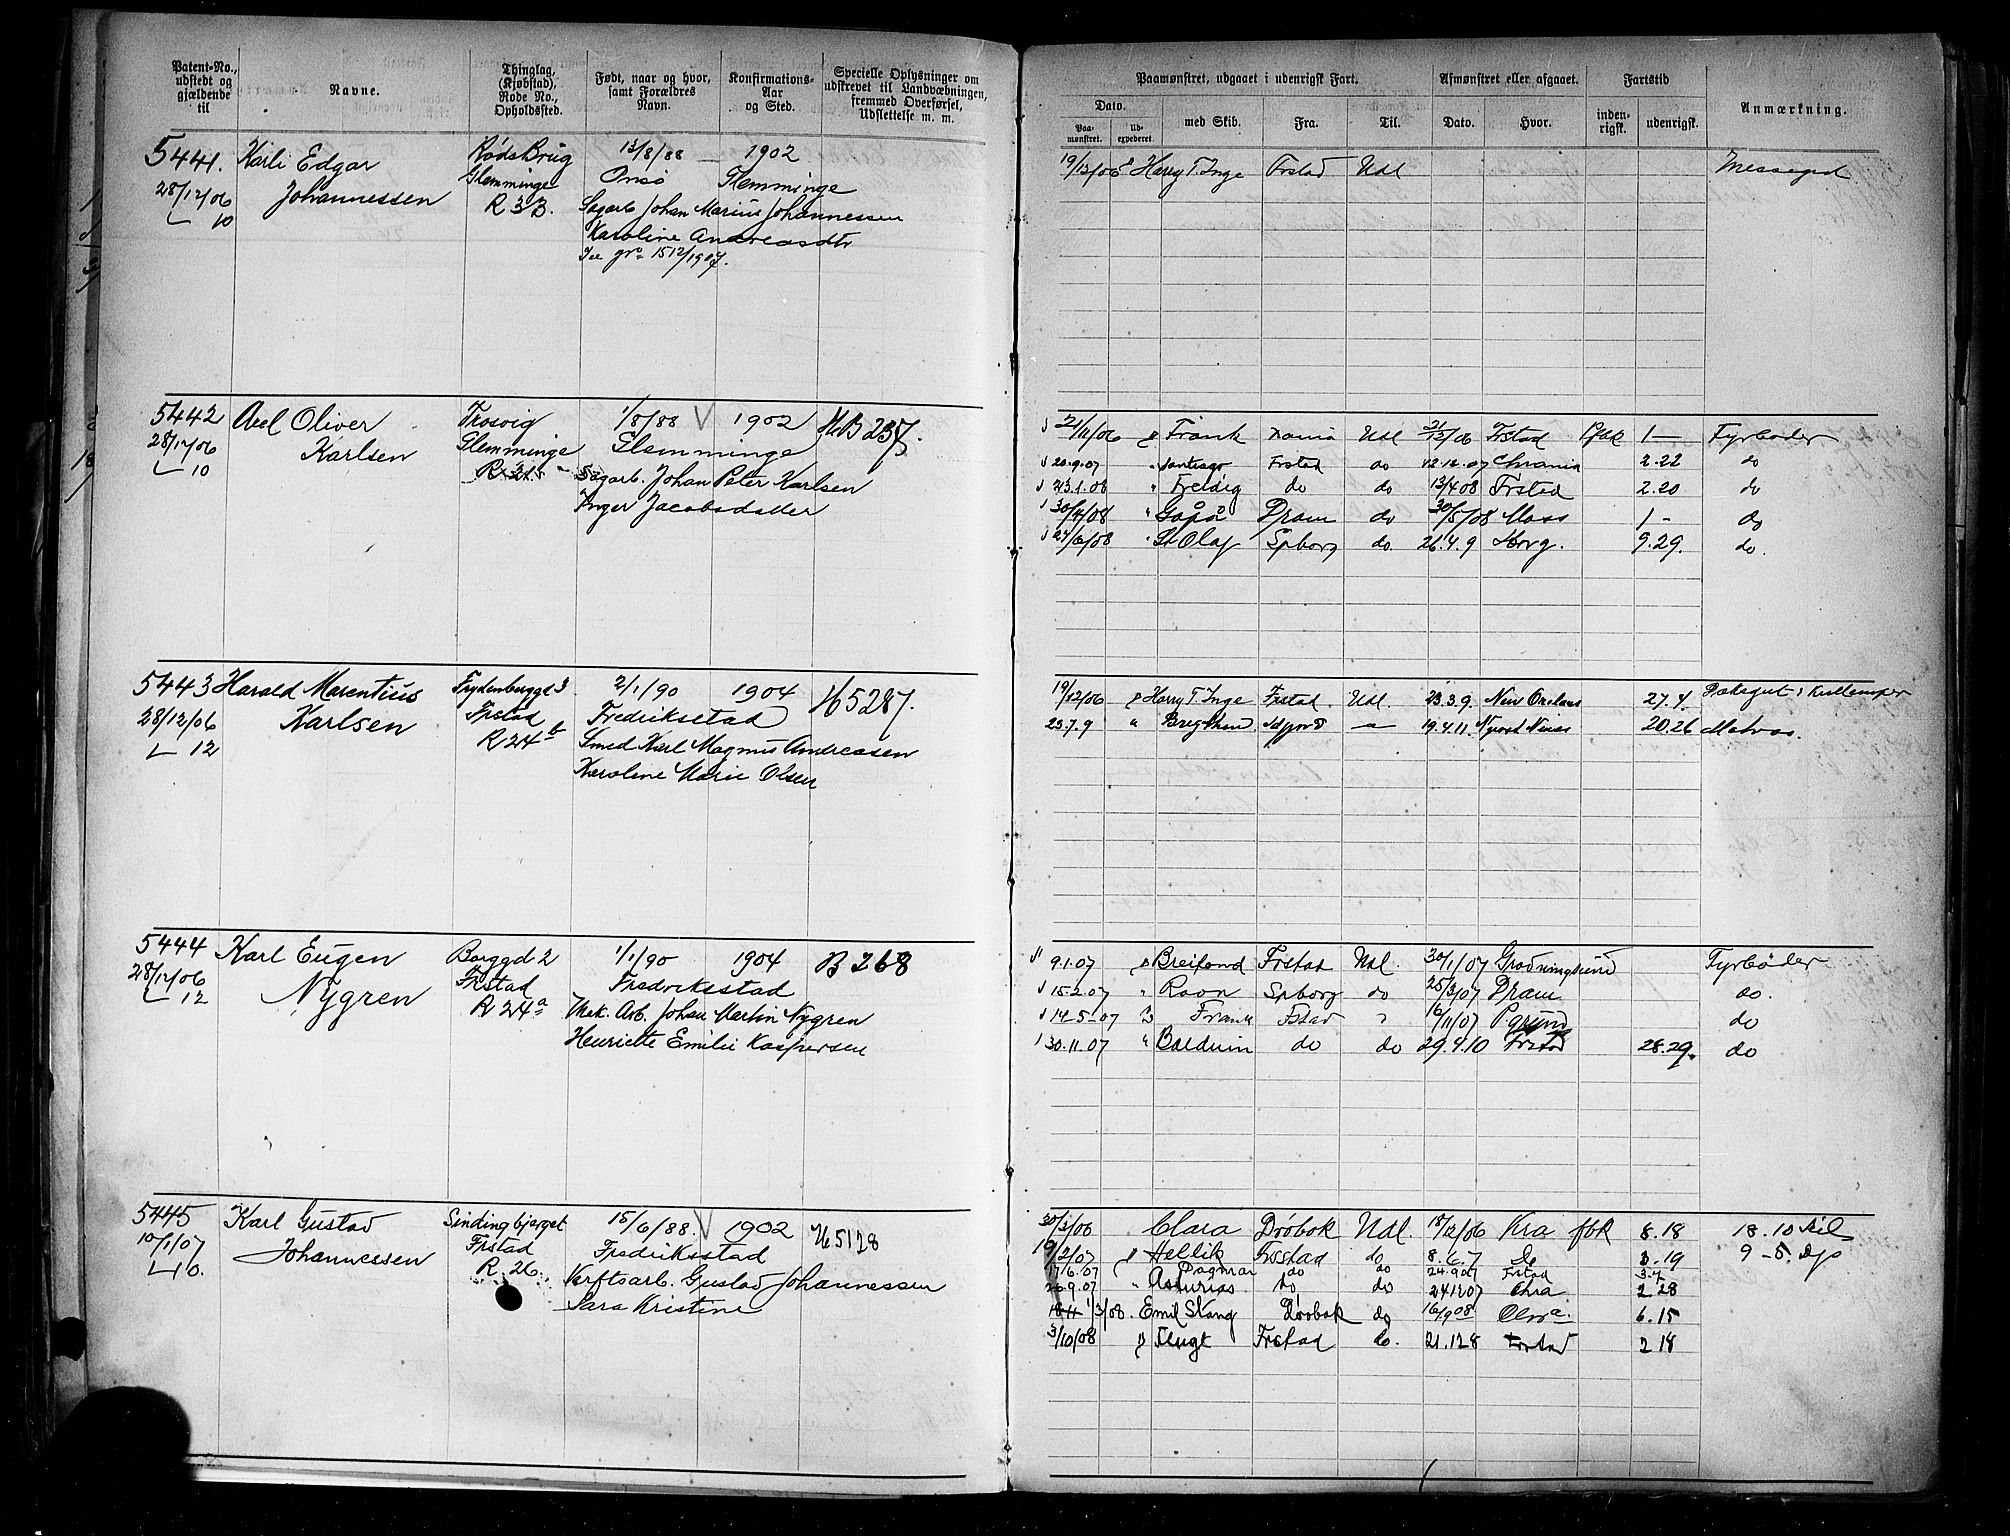 Patent-No., udstedt og gjældende til
Navne.
Thinglag, (Kjøbstad), Rode No., Opholdssted.
Født, naar og hvor, samt Forældres Navn.
Konfirmations-Aar og Sted.
Specielle Oplysninger om udskrevet til Landvæbningen, fremmed Overførsel, Udslettelse m. m.
Paamønstret, udgaaet i udenrigsk Fart.
Afmønstret eller afgaaet.
Fartstid
Anmærkning.
Dato.
Paa-mønstret.
Ud-expederet.
med Skib.
Fra.
Til.
Dato.
Hvor.
inden-rigsk.
udenrigsk.
5441. Karli Edgar Rødsbrug 13/8/88 1902
28/12/06 Johannessen Glemminge Onsø Glemminge
10 R 3B. Sagarb. Johan Marius Johannessen
Karoline Andreasdtr
Se gr 1512/1907.
19/12/06 Harry T Inge Frstad Udl Messegut
5442 Axel Oliver Trosvig 1/8/88 V 1902
28/12/06 Karlsen Glemminge Glemminge
10 Sagarb. Johan Peter Karlsen
Inger Jacobsdatter
22/11/06 Frank Udl Frstad 1 — Fyrbøder
20.9.07 Santiago Frstad do 12.12.07 Chrania 2.22 do
23.1.08 Fredig do do 13/4 08 Frstad 2.20 do
30/4/08 Dram do 30/5/08 Moss 1 - do
27/6/08 St Olaf Spborg do 26.4.9 9.29. do.
5443 Harald Marentius Frydenberggd 3 2/1/90 1904 H 5287.
28/12/06 Karlsen Frstad Fredrikstad
12 R 24b Smed Karl Magnus Andreassen
Karoline Marie Olsen
19/12/06 Harry T Inge Frstad. Udl. 23.3.9 New Orleans 27.4.
23.7.9 19.4.11. 20.26 Matros.
5444 Karl Eugen Borggd 2 1/1/90 1904 B 268
28/12/06 Nygren Frstad Fredrikstad
12 R 24a Mek. Arb. Johan Martin Nygren
Henriette Emilie Kaspersen
9.1.07 Breifond Frstad Udl. 30/1/07 Fyrbøder
15.2.07 Ravn Spborg do 25/3/07 Dram do.
14-5-07 Frank Fstad 16/11/07 Pgrund do
30.11.07 Balduin do do 29.4.10 Frstad 28.29. do
5445 Karl Gustav Sindingbjerget 15/6/88. V 1902 H 5128
10/1/07 Johannessen Frstad Fredrikstad
10. R. 26. Verftsarb. Gustav Johannessen
Sara Kristine
30/3/06 Clara Drøbak Udl. 18/12/06 Kra fbk 8.18
19/2/07 Hellik Frstad do 8.6.7 3.19
17/6.07 Dagmar do do 24.9.07 Frstad 3.7
26.9.07 Asturias do do 241207 Chra 2 28
1/3/08. Emil Stang Drøbak do 16/9 08 6.15
3/10/08 Flugt Frstad do. 21.12 8 Frstad 2 18